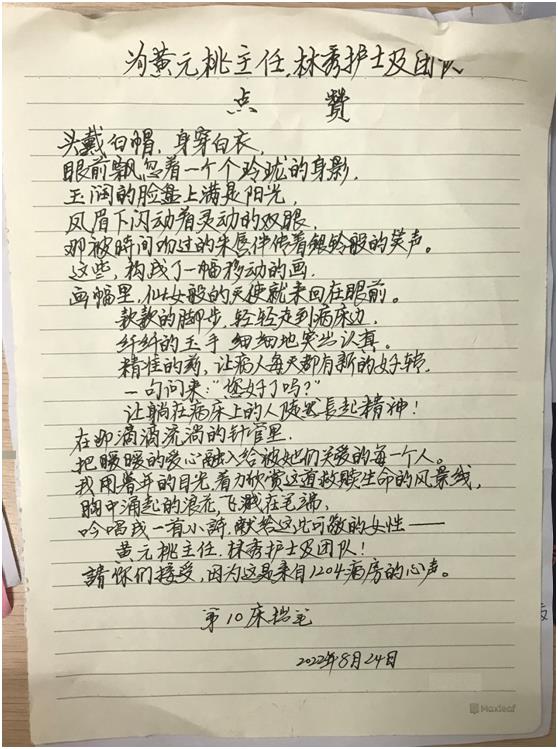 为黄元桃主任.林秀护士及团队
点 赞
头戴白帽,身穿白衣,
眼前飘忽着一个个玲珑的身影,
玉润的脸盘上满是阳光,
凤眉下闪动着灵动的双眼,
那被时间吻过的朱唇伴传着银铃般的笑声。
这些,构成了一幅移动的画.
画幅里,仙女般的天使就来回在眼前。
款款的脚步,轻轻走到病床边,
纤纤的玉手 细细地突出认真。
精准的药,让病人每天都有新的好转.
一句问来:“您好了吗?”
让躺在病床上的人陡然長起精神!
在那滴滴流淌的针管里.
把暖暖的爱心融入给被她们关爱的每一个人。
我用昏花的目光,着力欣赏这道救赎生命的风景线,
胸中涌起的浪花,飞溅在笔端,
吟唱成一首小詩,献给这些可敬的女性——
黄元桃主任.林秀护士及团队!
請你们接受,因为这是来自1204病房的心声。
第10床拙笔
2022年8月24日
Maxleaf